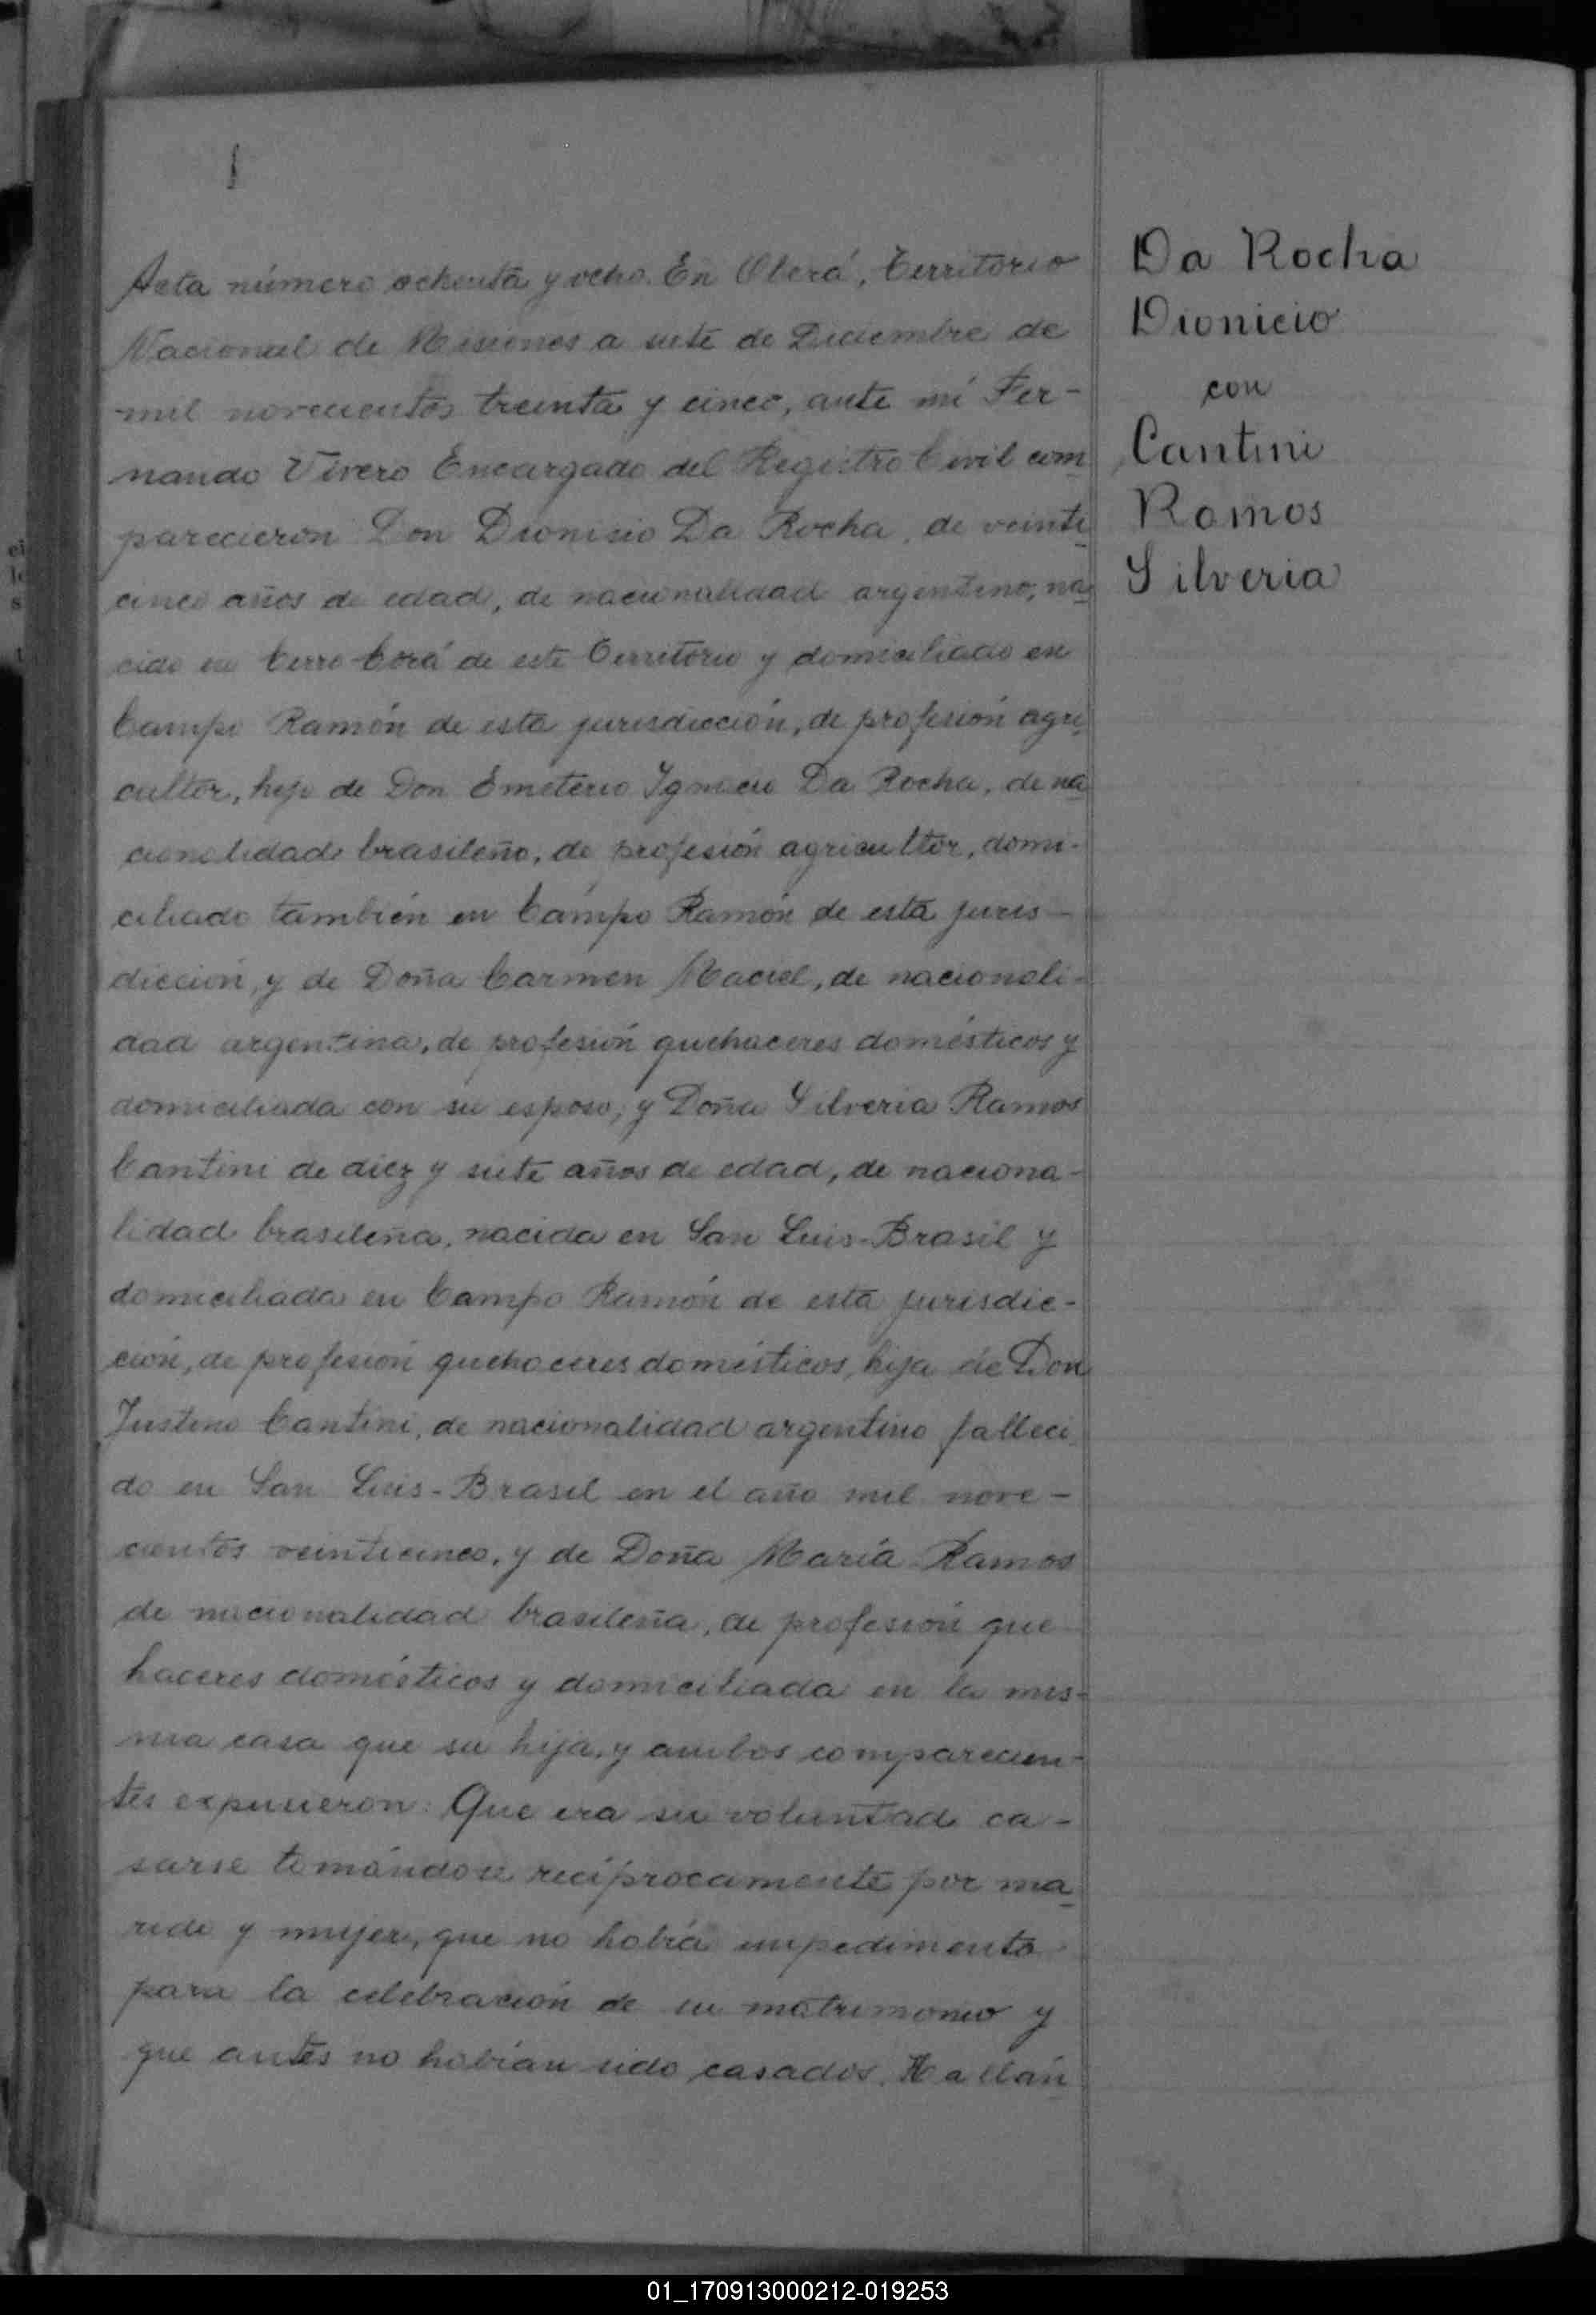 Acta número ochenta y ocho. En Oberá, Territorio
Nacional de Misiones a siete de Diciembre de
mil novecientos treinta y cinco, ante mí Fer-
nando Vivero Encargado del Registro Civil com
parecieron Don Dionisio Da Rocha, de veinti
cinco años de edad, de nacionalidad argentino, na
cido en Cerro-Corá de este Territorio y domiciliado en
Campo Ramón de esta jurisdicción, de profesión agri
cultor, hijo de Don Emeterio Ignacio Da Rocha, de na
cionalidad brasileño, de profesión agricultor, domi-
ciliado también en Campo Ramón de esta juris-
dicción, y de Doña Carmen Maciel, de nacionali-
dad argentina, de profesión quehaceres domésticos y
domiciliada con su esposo, y Doña Silveria Ramos
Cantini de diez y siete años de edad, de naciona-
lidad brasileña, nacida en San Luis-Brasil y
domiciliada en Campo Ramón de esta jurisdic-
ción, de profesión quehaceres domésticos, hija de Don
Justino Cantini, de nacionalidad argentino falleci
do en San Luis-Brasil en el año mil nove-
cientos veinticinco, y de Doña María Ramos
de nacionalidad brasileña, de profesión que
haceres domésticos y domiciliada en la mis-
ma casa que su hija, y ambos comparecien-
tes expusieron: Que era su voluntad ca-
sarse tomándose recíprocamente por ma
rido y mujer, que no había impedimento
para la celebración de su matrimonio y
que antes no habían sido casados. Hallán
Da Rocha
Dionicio
con
Cantini
Ramos
Silveria
01_170913000212-019253